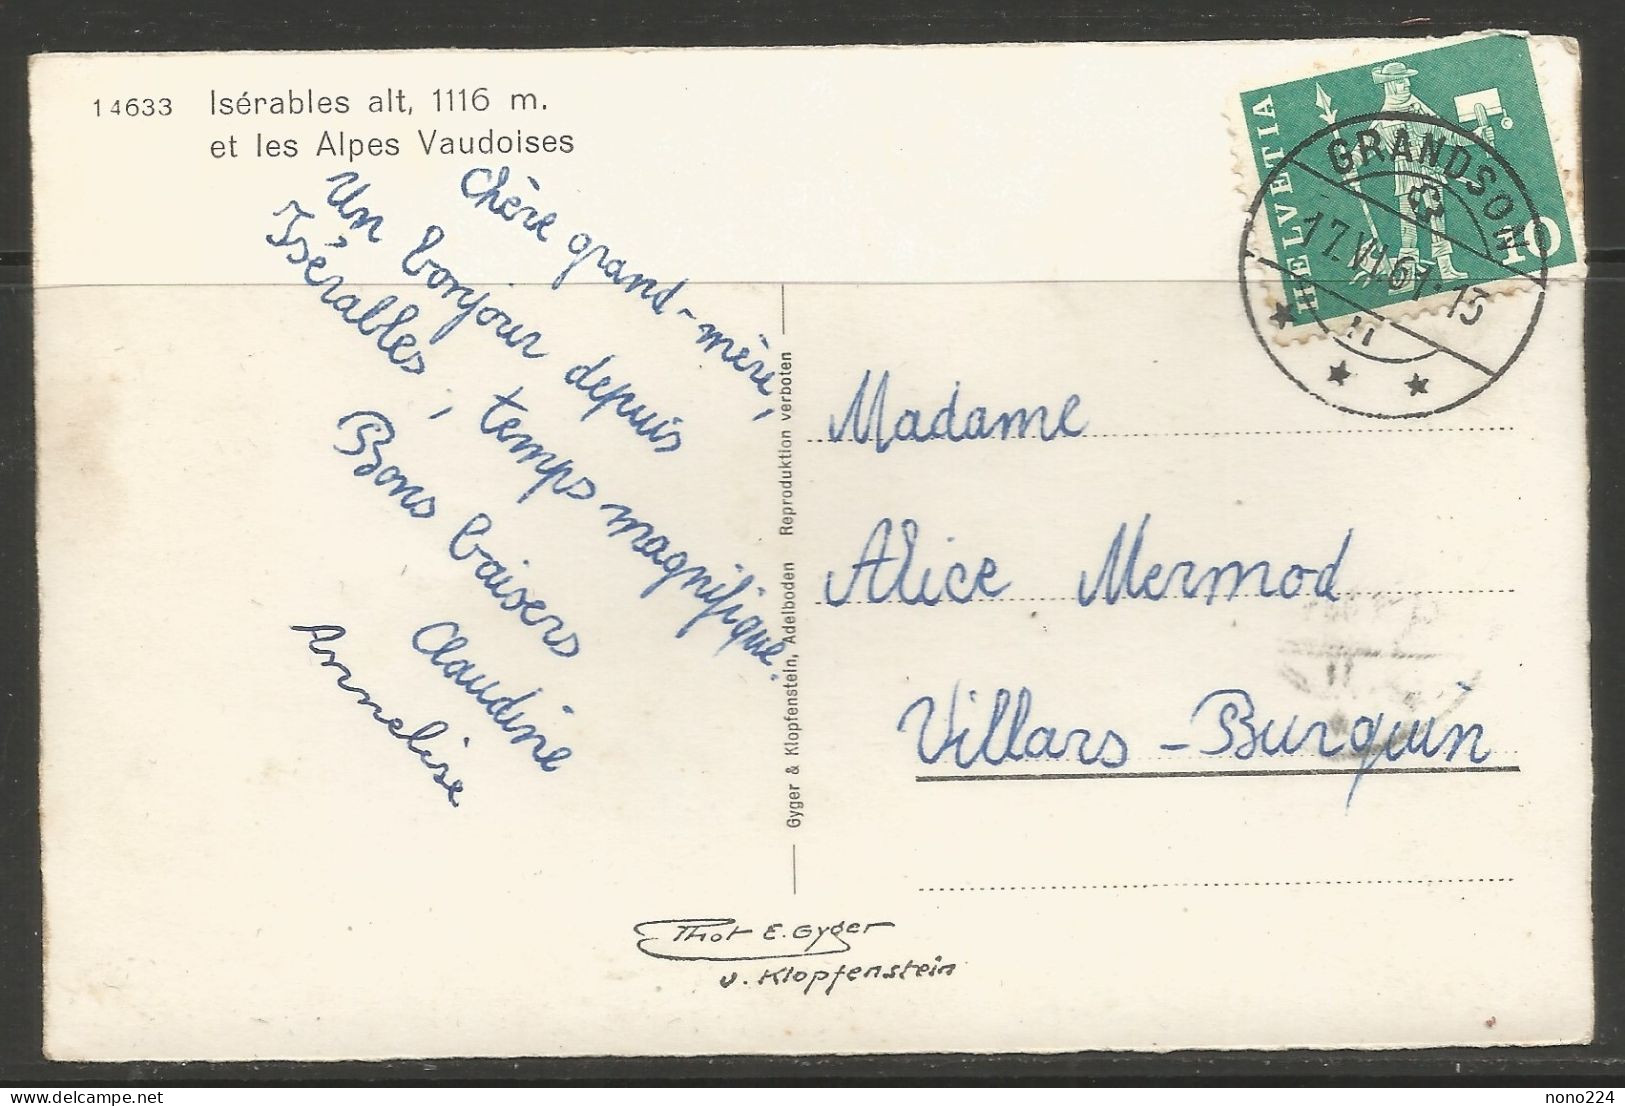 14633 Isérables alt, 1116 m.
et les Alpes Vaudoises
Chère grand-mère,
Un bonjour depuis
Isérables, temps magnifique.
Bons baisers
Claudine
Annelise
Gyger & Klopfenstein, Adelboden Reproduktion verboten
HELVETIA
10
GRANDSON
17.VI.61-15
Madame
Alice Mermod
Villars-Burquin
Phot E. Gyger
u. Klopfenstein
nono224